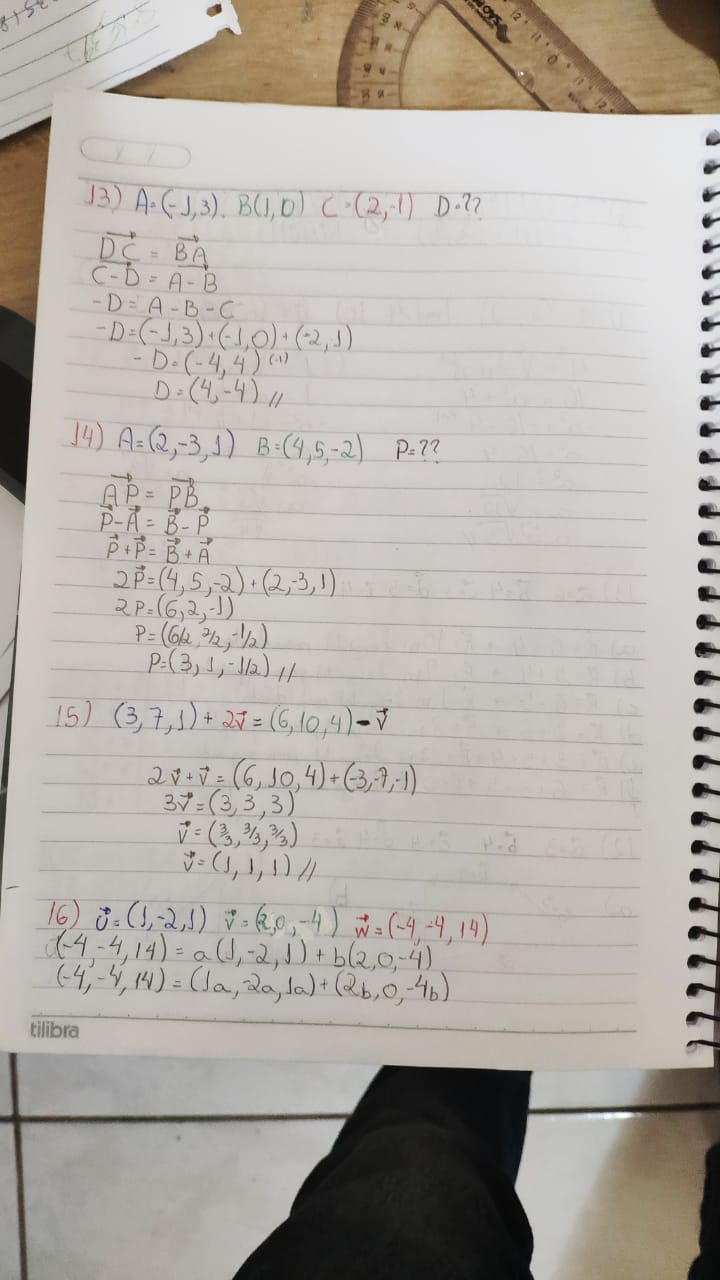 13) A=(-1,3). B(1,0) C=(2,-1) D=??
DC = BA
C-D = A-B
-D= A-B-C
-D=(-1,3)+(-1,0)+(-2,1)
-D=(-4,4) (-1)
D=(4,-4) //
14) A=(2,-3,1) B=(4,5,-2) P=??
AP = PB
P-A = B-P
P+P = B+A
2P=(4,5,-2)+(2,-3,1)
2P=(6,2,-1)
P=(6/2,2/2,-1/2)
P=(3,1,-1/2) //
15) (3,7,1)+2v=(6,10,4)-v
2v+v=(6,10,4)+(-3,-7,-1)
3v=(3,3,3)
v=(3/3,3/3,3/3)
v=(1,1,1)//
16) u=(1,-2,1) v=(2,0,-4) w=(-4,-4,14)
(-4,-4,14)=a(1,-2,1)+b(2,0,-4)
(-4,-4,14)=(1a,-2a,1a)+(2b,0,-4b)
tilibra